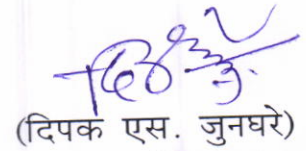 (दिपक एस. जुनघरे)